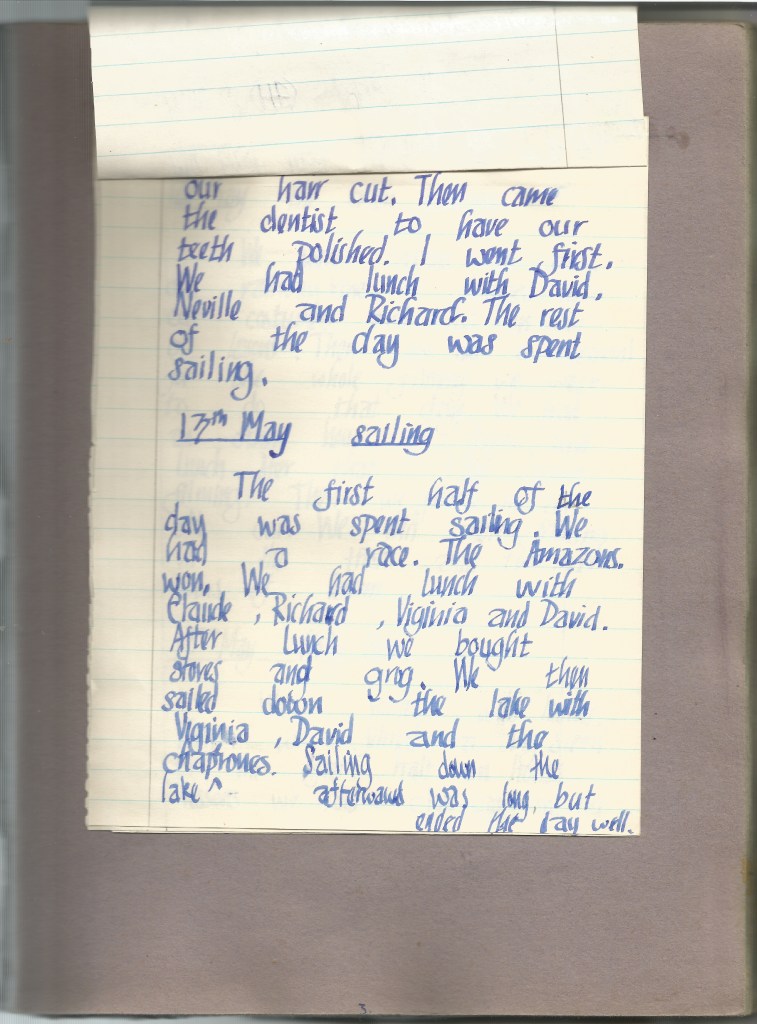 our hair cut. Then came
the dentist to have our
teeth polished. I went first.
We had lunch with David,
Neville and Richard. The rest
of the day was spent
sailing.
13th May sailing
The first half of the
day was spent sailing. We
had a race. The Amazons.
won. We had lunch with
Claude, Richard, Viginia and David.
After lunch we bought
stores and grog. We then
sailed down the lake with
Viginia, David and the
chaprones. Sailing down the
lake ^ afterwaws was long, but
ended the day well.
3.